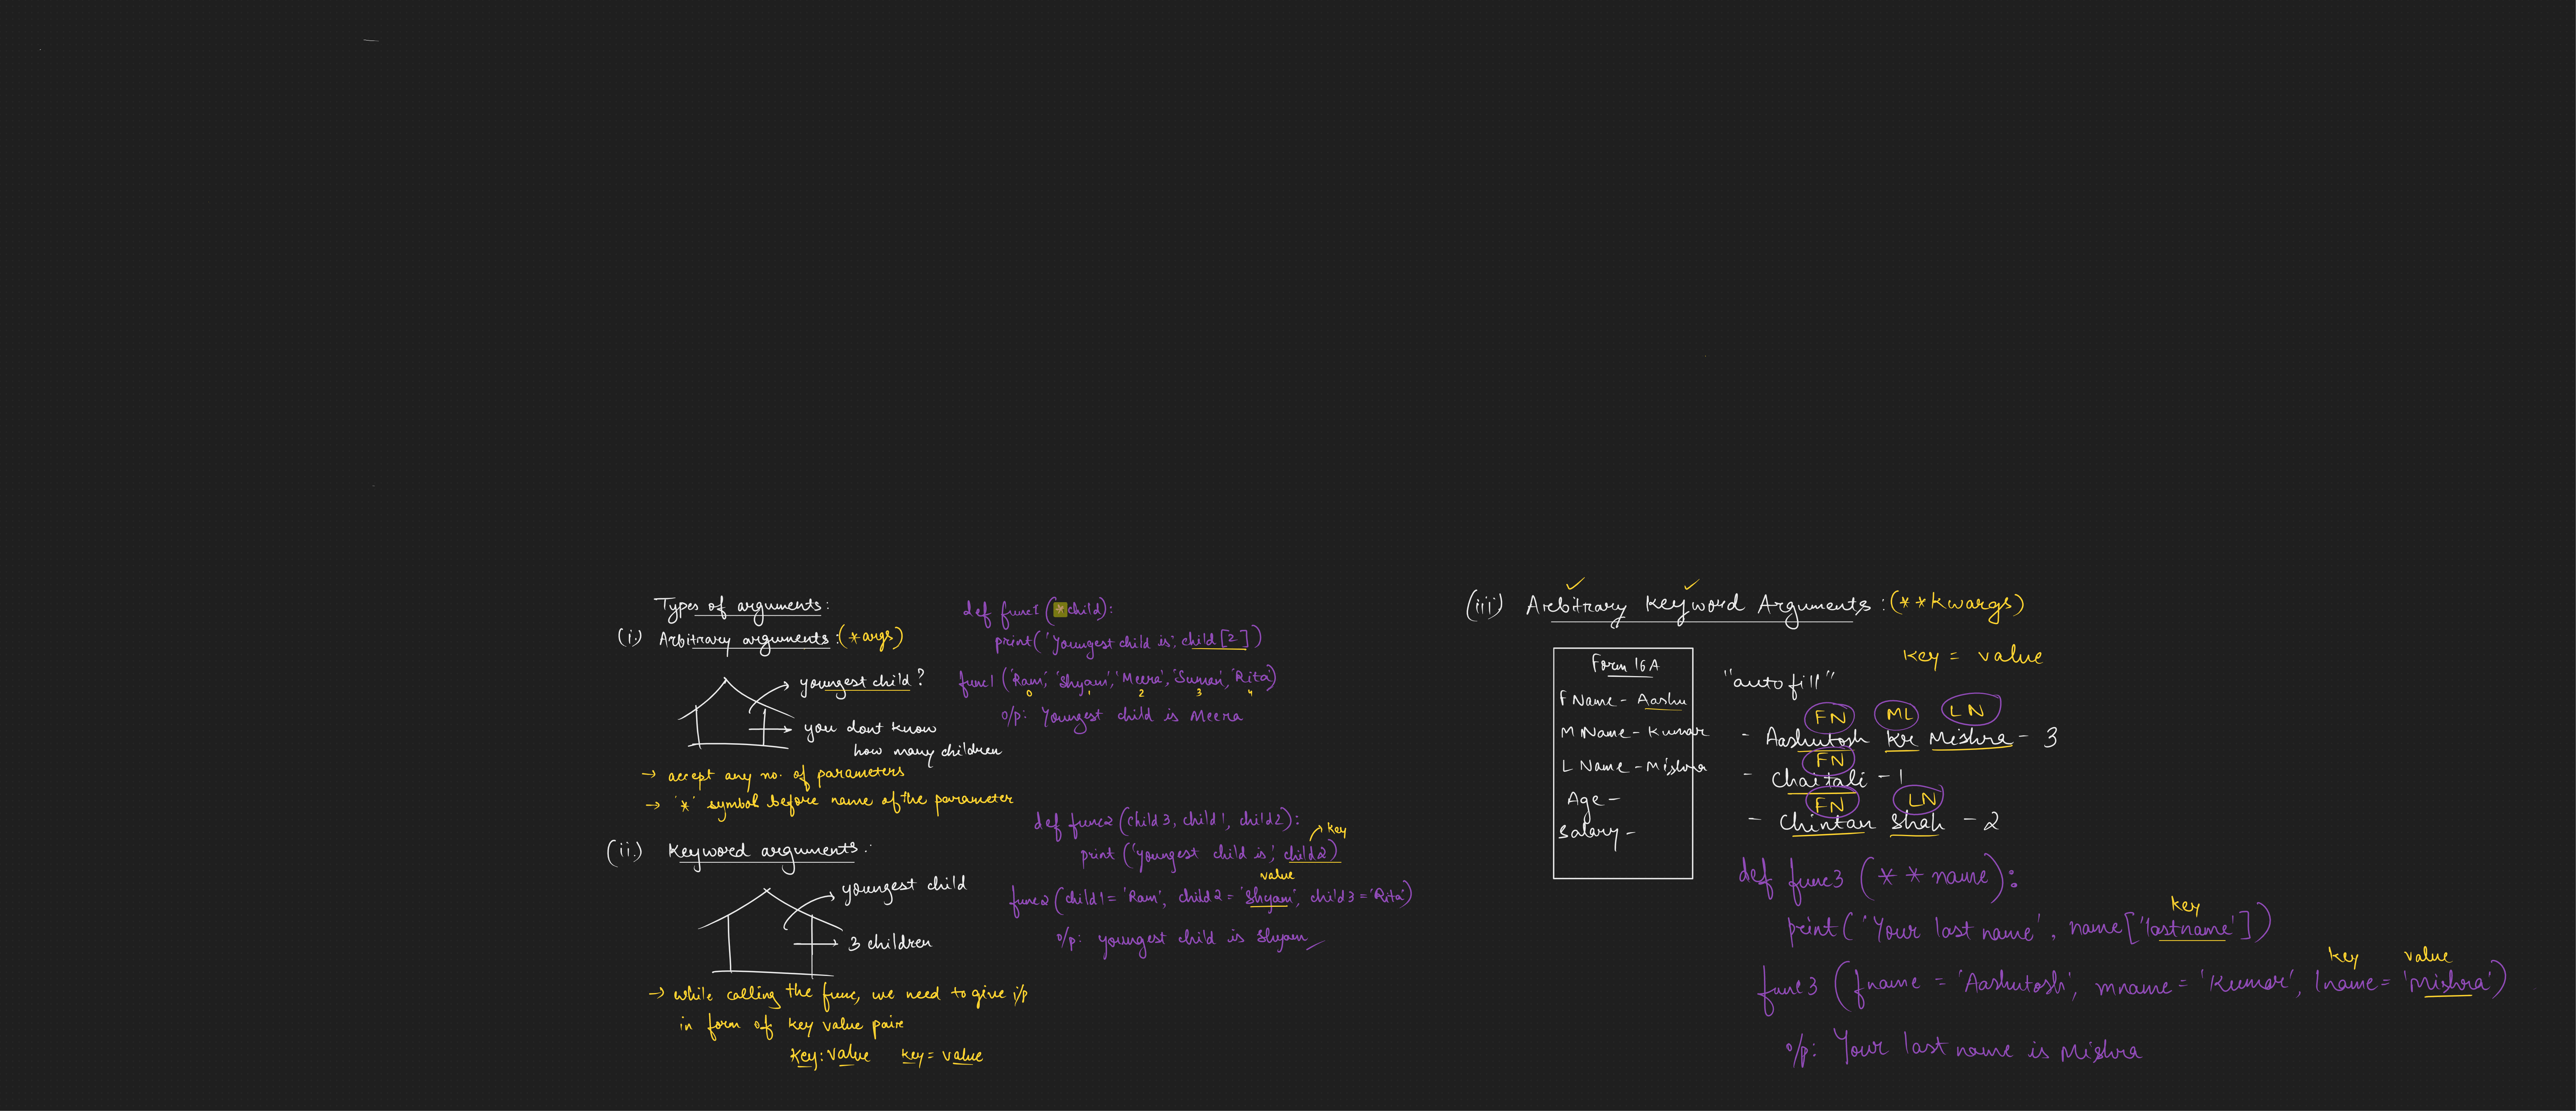 Types of arguments:
(i.) Arbitrary arguments: (*args)
youngest child?
you dont know
how many children
→ accept any no. of parameters
→ '*' symbol before name of the parameter
def func1 (*child):
print('Youngest child is', child[2])
func1 ('Ram', 'Shyam', 'Meera', 'Suman', 'Rita')
0 1 2 3 4
o/p: Youngest child is Meera
(ii.) Keyword arguments:
youngest child
3 children
→ while calling the func, we need to give i/p
in form of key value pair
Key: value key = value
def func2 (child3, child1, child2):
key
print ('youngest child is', child2)
value
func2 (child1 = 'Ram', child2 = 'Shyam', child3 = 'Rita')
o/p: youngest child is Shyam
(iii) Arbitrary Keyword Arguments: (**kwargs)
key = value
Form 16A
F Name - Aashu
M Name - Kumar
L Name - Mishra
Age -
Salary -
"auto fill"
FN ML LN
- Aashutosh Kr Mishra - 3
FN
- Chaitali - 1
FN LN
- Chintan Shah - 2
def func3 (**name):
key
print('Your last name', name['lastname'])
key value
func3 (fname = 'Aashutosh', mname = 'Kumar', lname = 'Mishra')
o/p: Your last name is Mishra